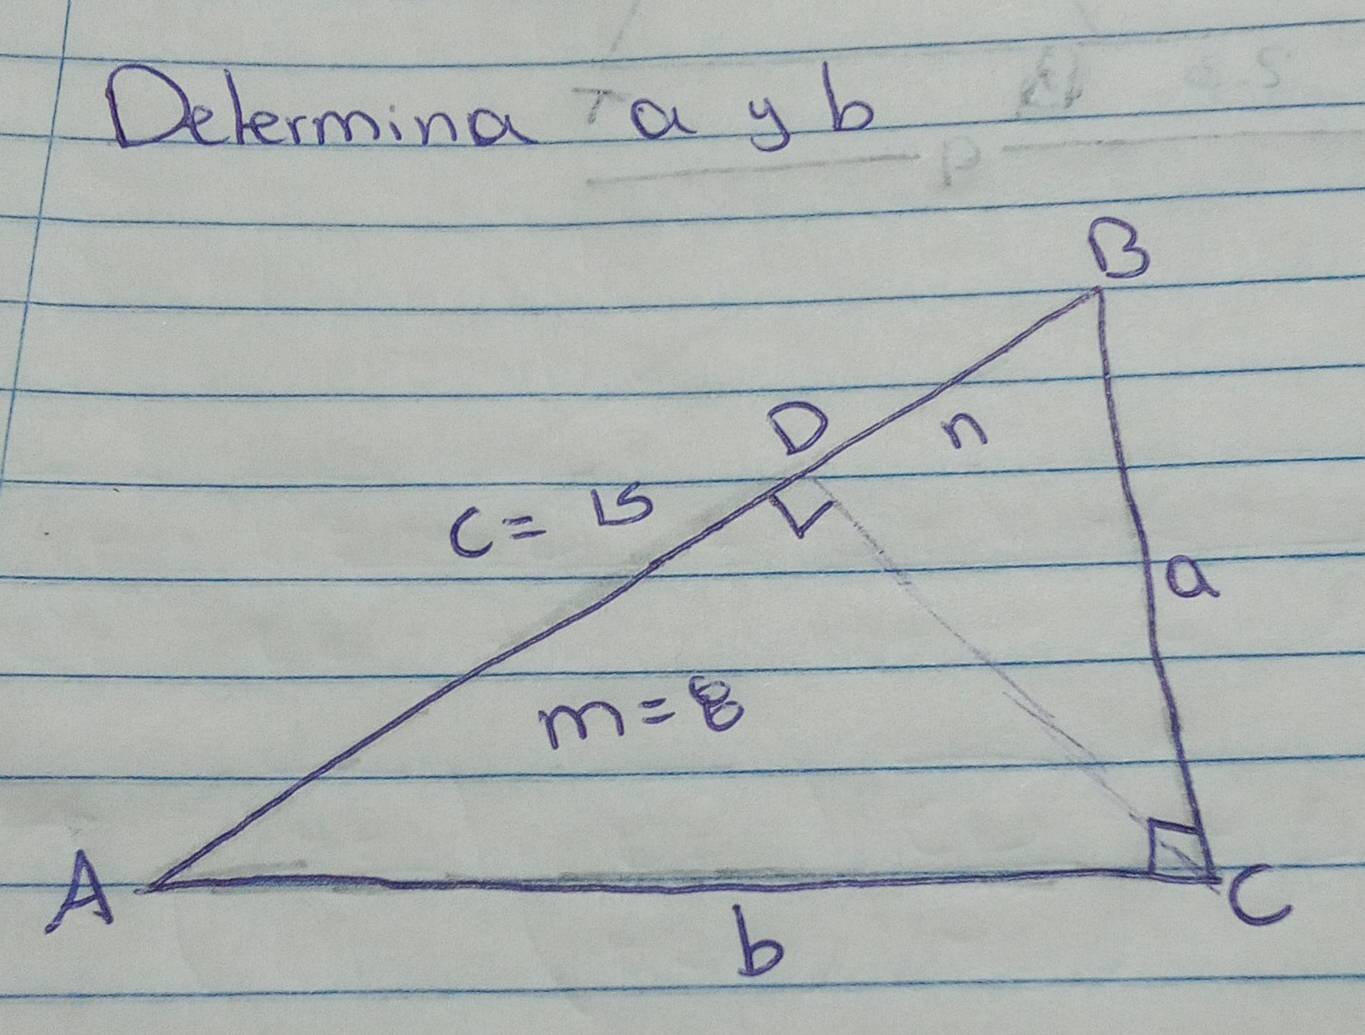 Determina a y b
B
D
n
c = 15
a
m = 8
A
C
b